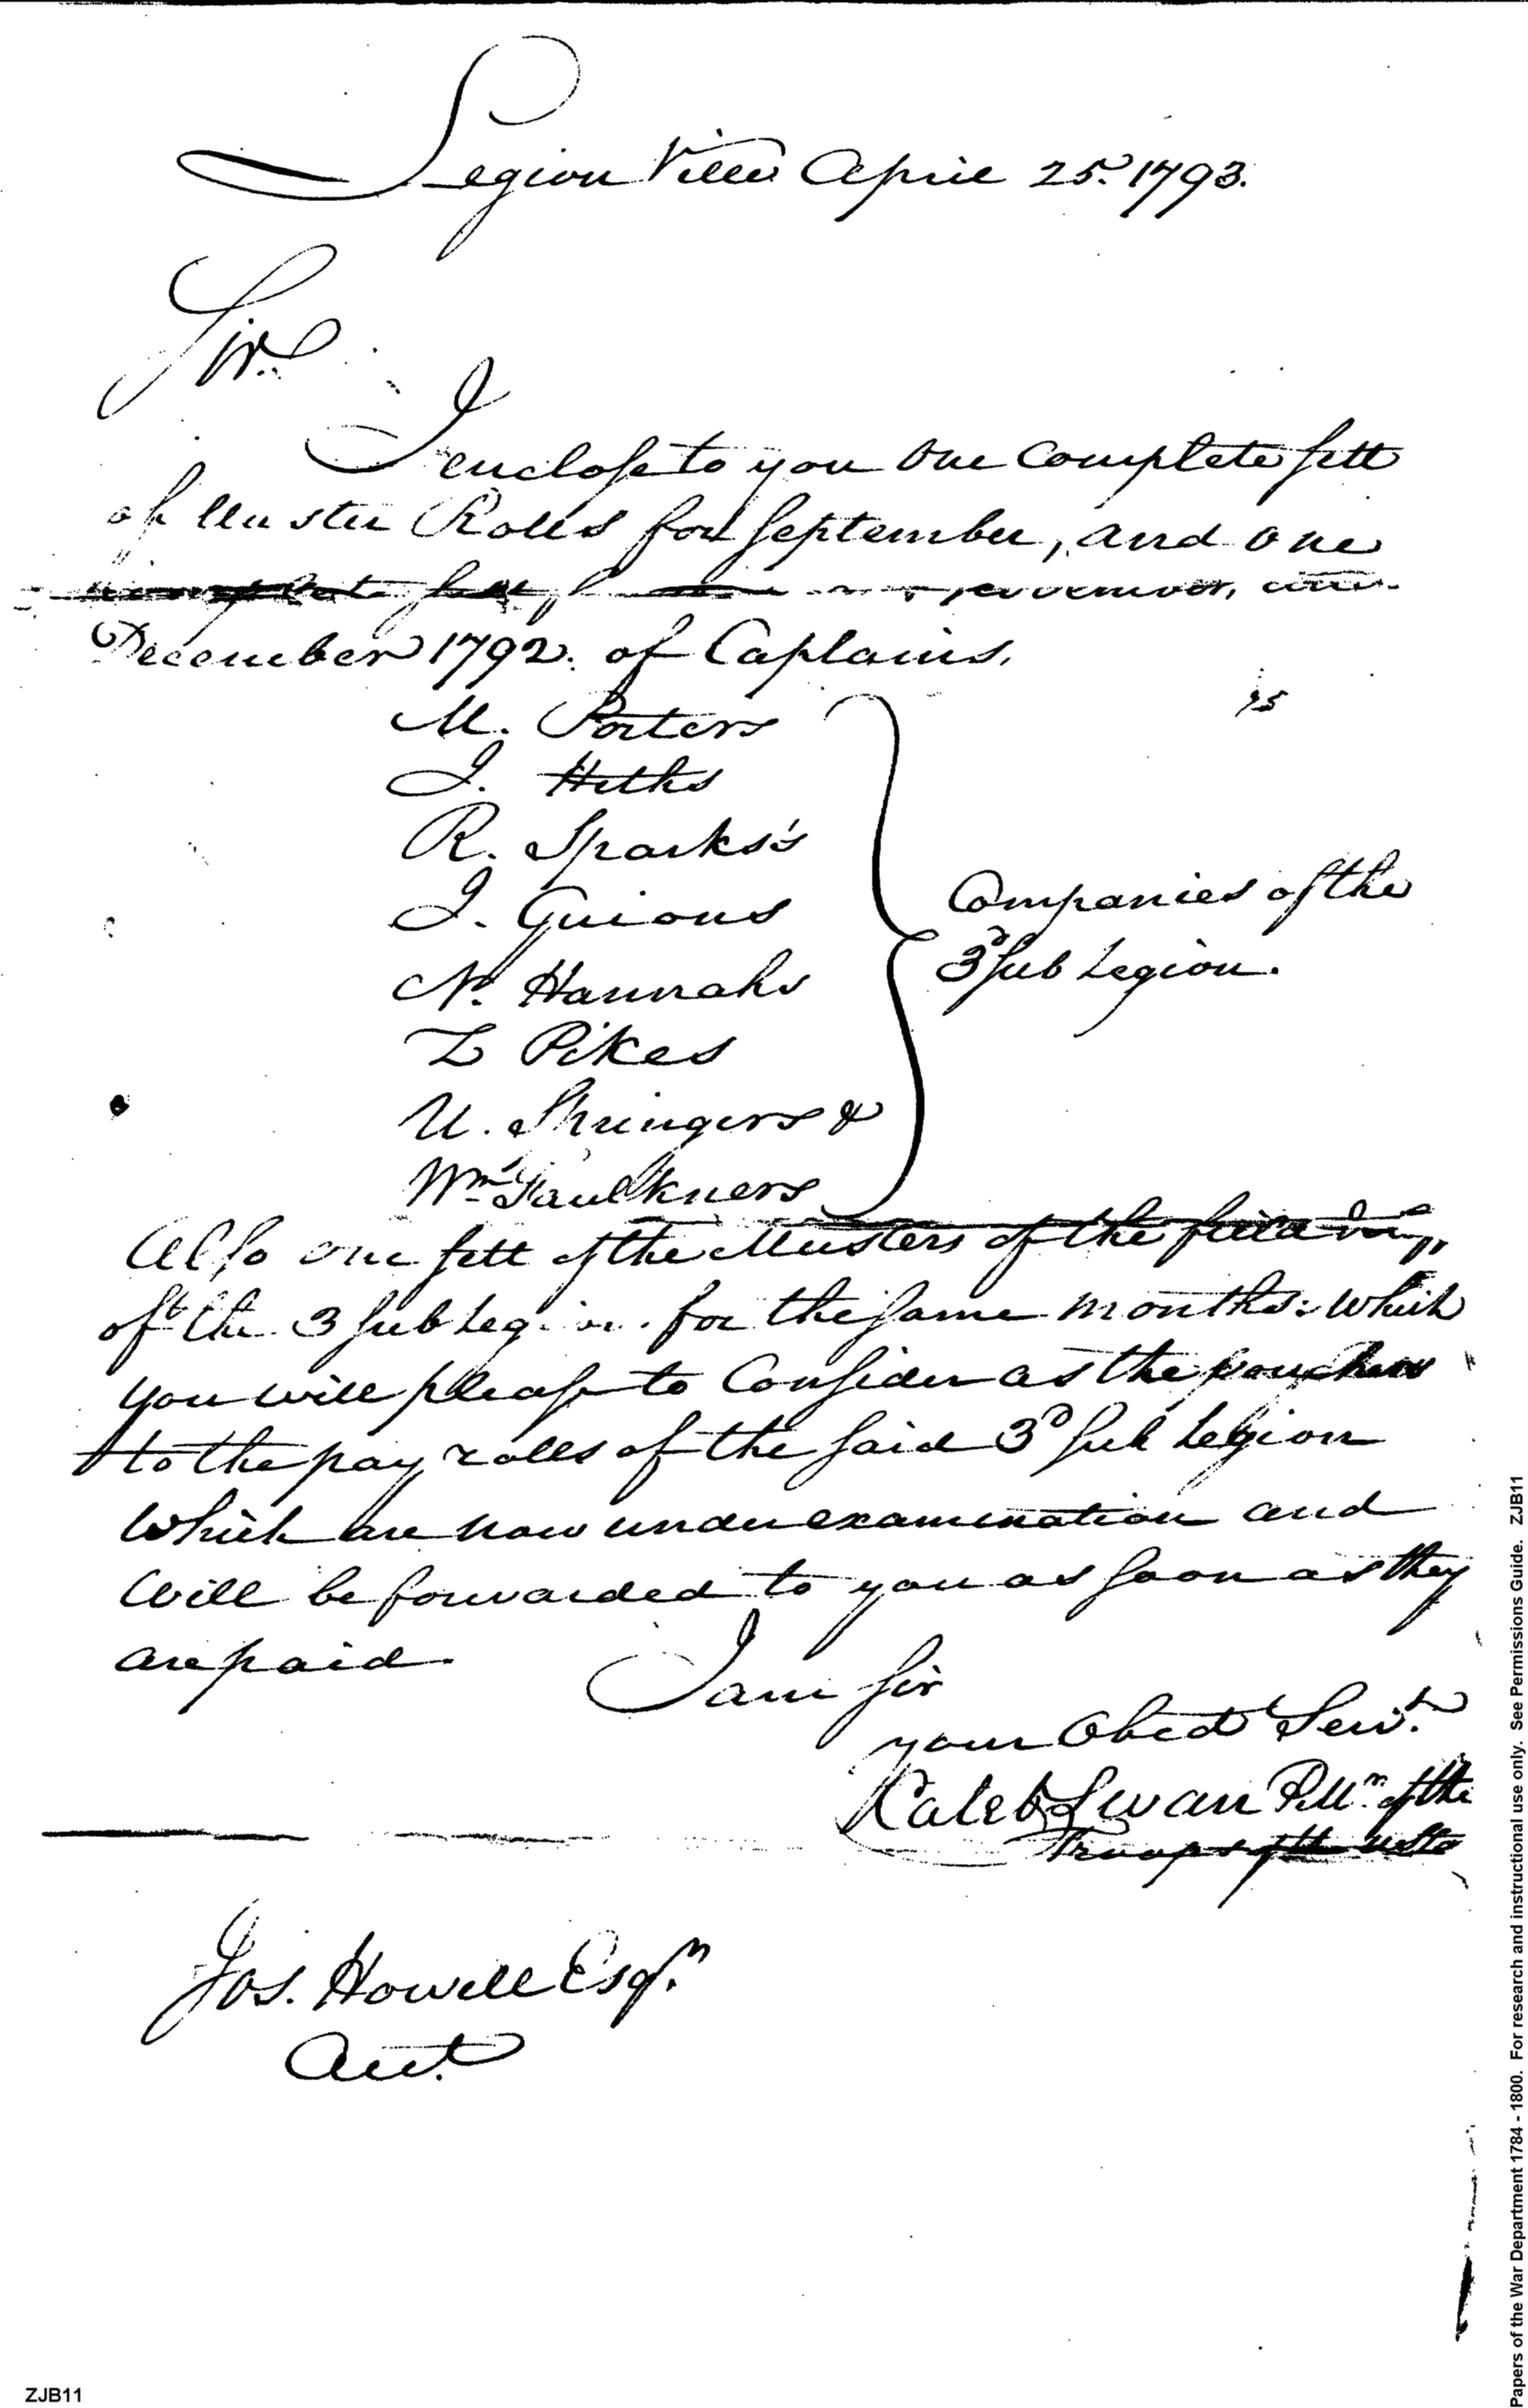 Legion Ville April 25. 1793.
Sir.
I enclose to you one complete sett
of Muster Rolls for September, and one
complete sett November, and
December 1792. of Captains.
M. Porters
J. Heths
R. Sparks's
J. Guions
N. Hannahs
Z Pikes
U. Springers &
Wm Faulkners
Companies of the
3d Sub Legion.
Also one sett of the Musters of the field
of the 3 Sub Legion. for the same months: which
you will please to Consider as the vouchers
to the pay rolls of the said 3d Sub Legion
which are now under examination and
will be forwarded to you as soon as they
are paid.
I am Sir
your Obed Servt.
Caleb Swan P.Mr of the
Troops of the U Sta
Jos. Howell Esqr.
Acct.
ZJB11
Papers of the War Department 1784 - 1800. For research and instructional use only. See Permissions Guide. ZJB11